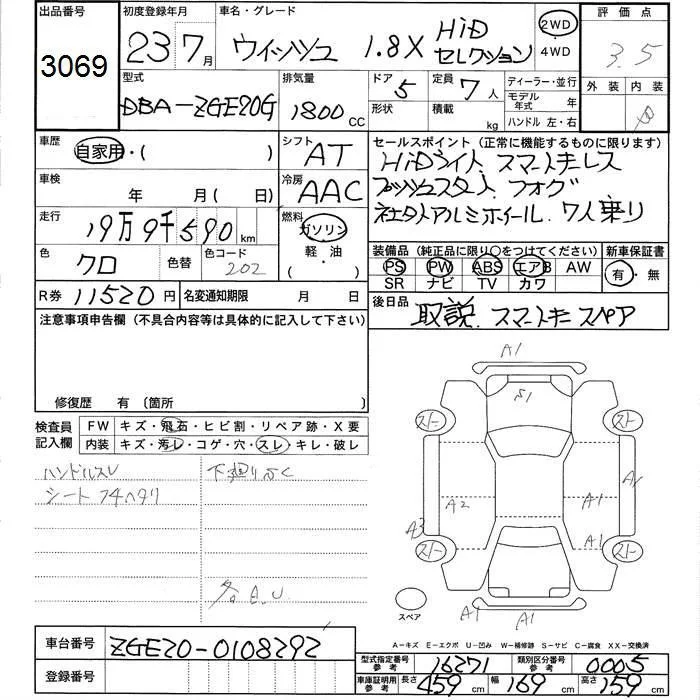 出品番号 初度登録年月 車名・グレード 評価点
3069 23 7月 ウィッシュ 1.8X HiD セレクション 2WD ・4WD 3.5
型式 排気量 ドア 定員 ディーラー・並行 外装 内装
DBA-ZGE20G 1800 CC 5 7人 モデル年式 年
形状 積載 kg ハンドル 左・右
車歴 自家用・( ) シフト AT セールスポイント (正常に機能するものに限ります)
HiDライト スマートキーレス
車検 年 月(日) 冷房 AAC プッシュスタート フォグ
社外アルミホイール 7人乗り
走行 19万9千590km 燃料 ガソリン・軽・油・( )
装備品 (純正品に限り○をつけてください) 新車保証書
色 クロ 色替 色コード 202 PS PW ABS エアB AW 有・無
SR ナビ TV カワ
R券 11520円 名変通知期限 月 日 後日品 取説. スマートキー スペア
注意事項申告欄 (不具合内容等は具体的に記入して下さい)
修復歴 有 〔箇所
検査員記入欄 FW キズ・飛石・ヒビ割・リペア跡・X要
内装 キズ・汚レ・コゲ・穴・スレ・キレ・破レ
ハンドルスレ 下廻りふく
シートフチヘタリ
各E.U
A1
S1
A2 A1 A1
A3 A1
スペア
A1 A1
A-キズ E-エクボ U-凹み W-補修跡 S-サビ C-腐食 XX-交換済
車台番号 ZGE20-0108292
型式指定番号 参考 16271 類別区分番号 参考 0005
登録番号 車庫証明用 参考 長さ 459cm 幅 169cm 高さ 159cm